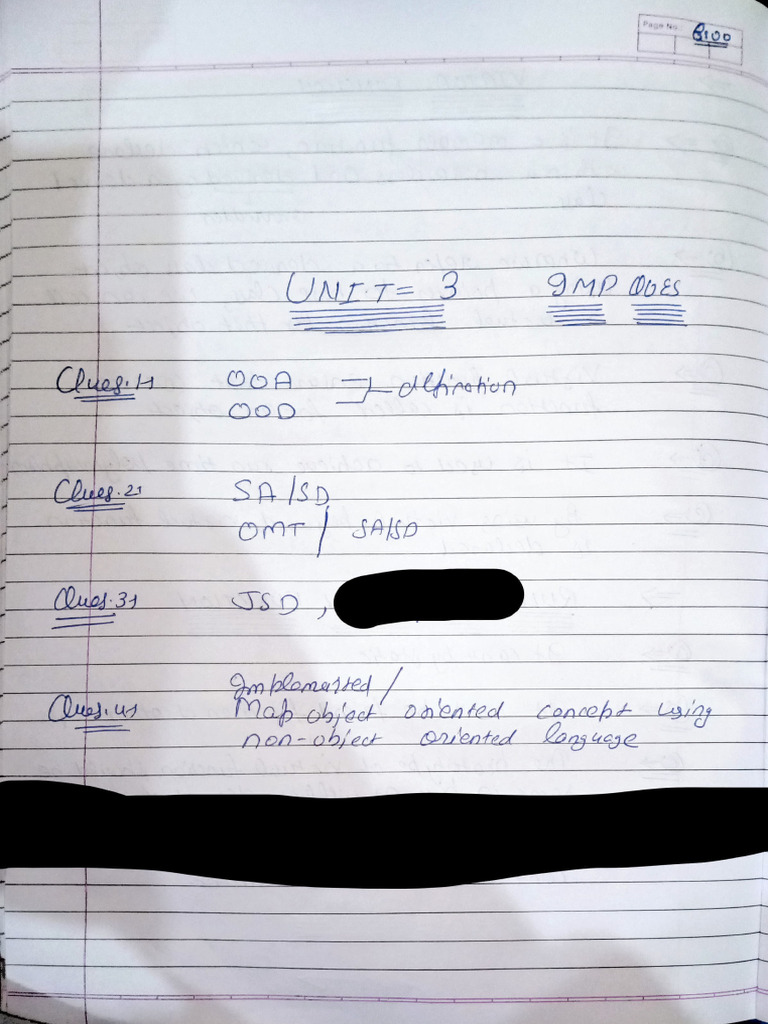 Page No.
UNIT = 3 IMP QUES
Ques.1 OOA
OOD defination
Ques.2 SA/SD
OMT / SA/SD
Ques.3 JSD ,
Ques.4 Implemanted /
Map object oriented concept using
non-object oriented language